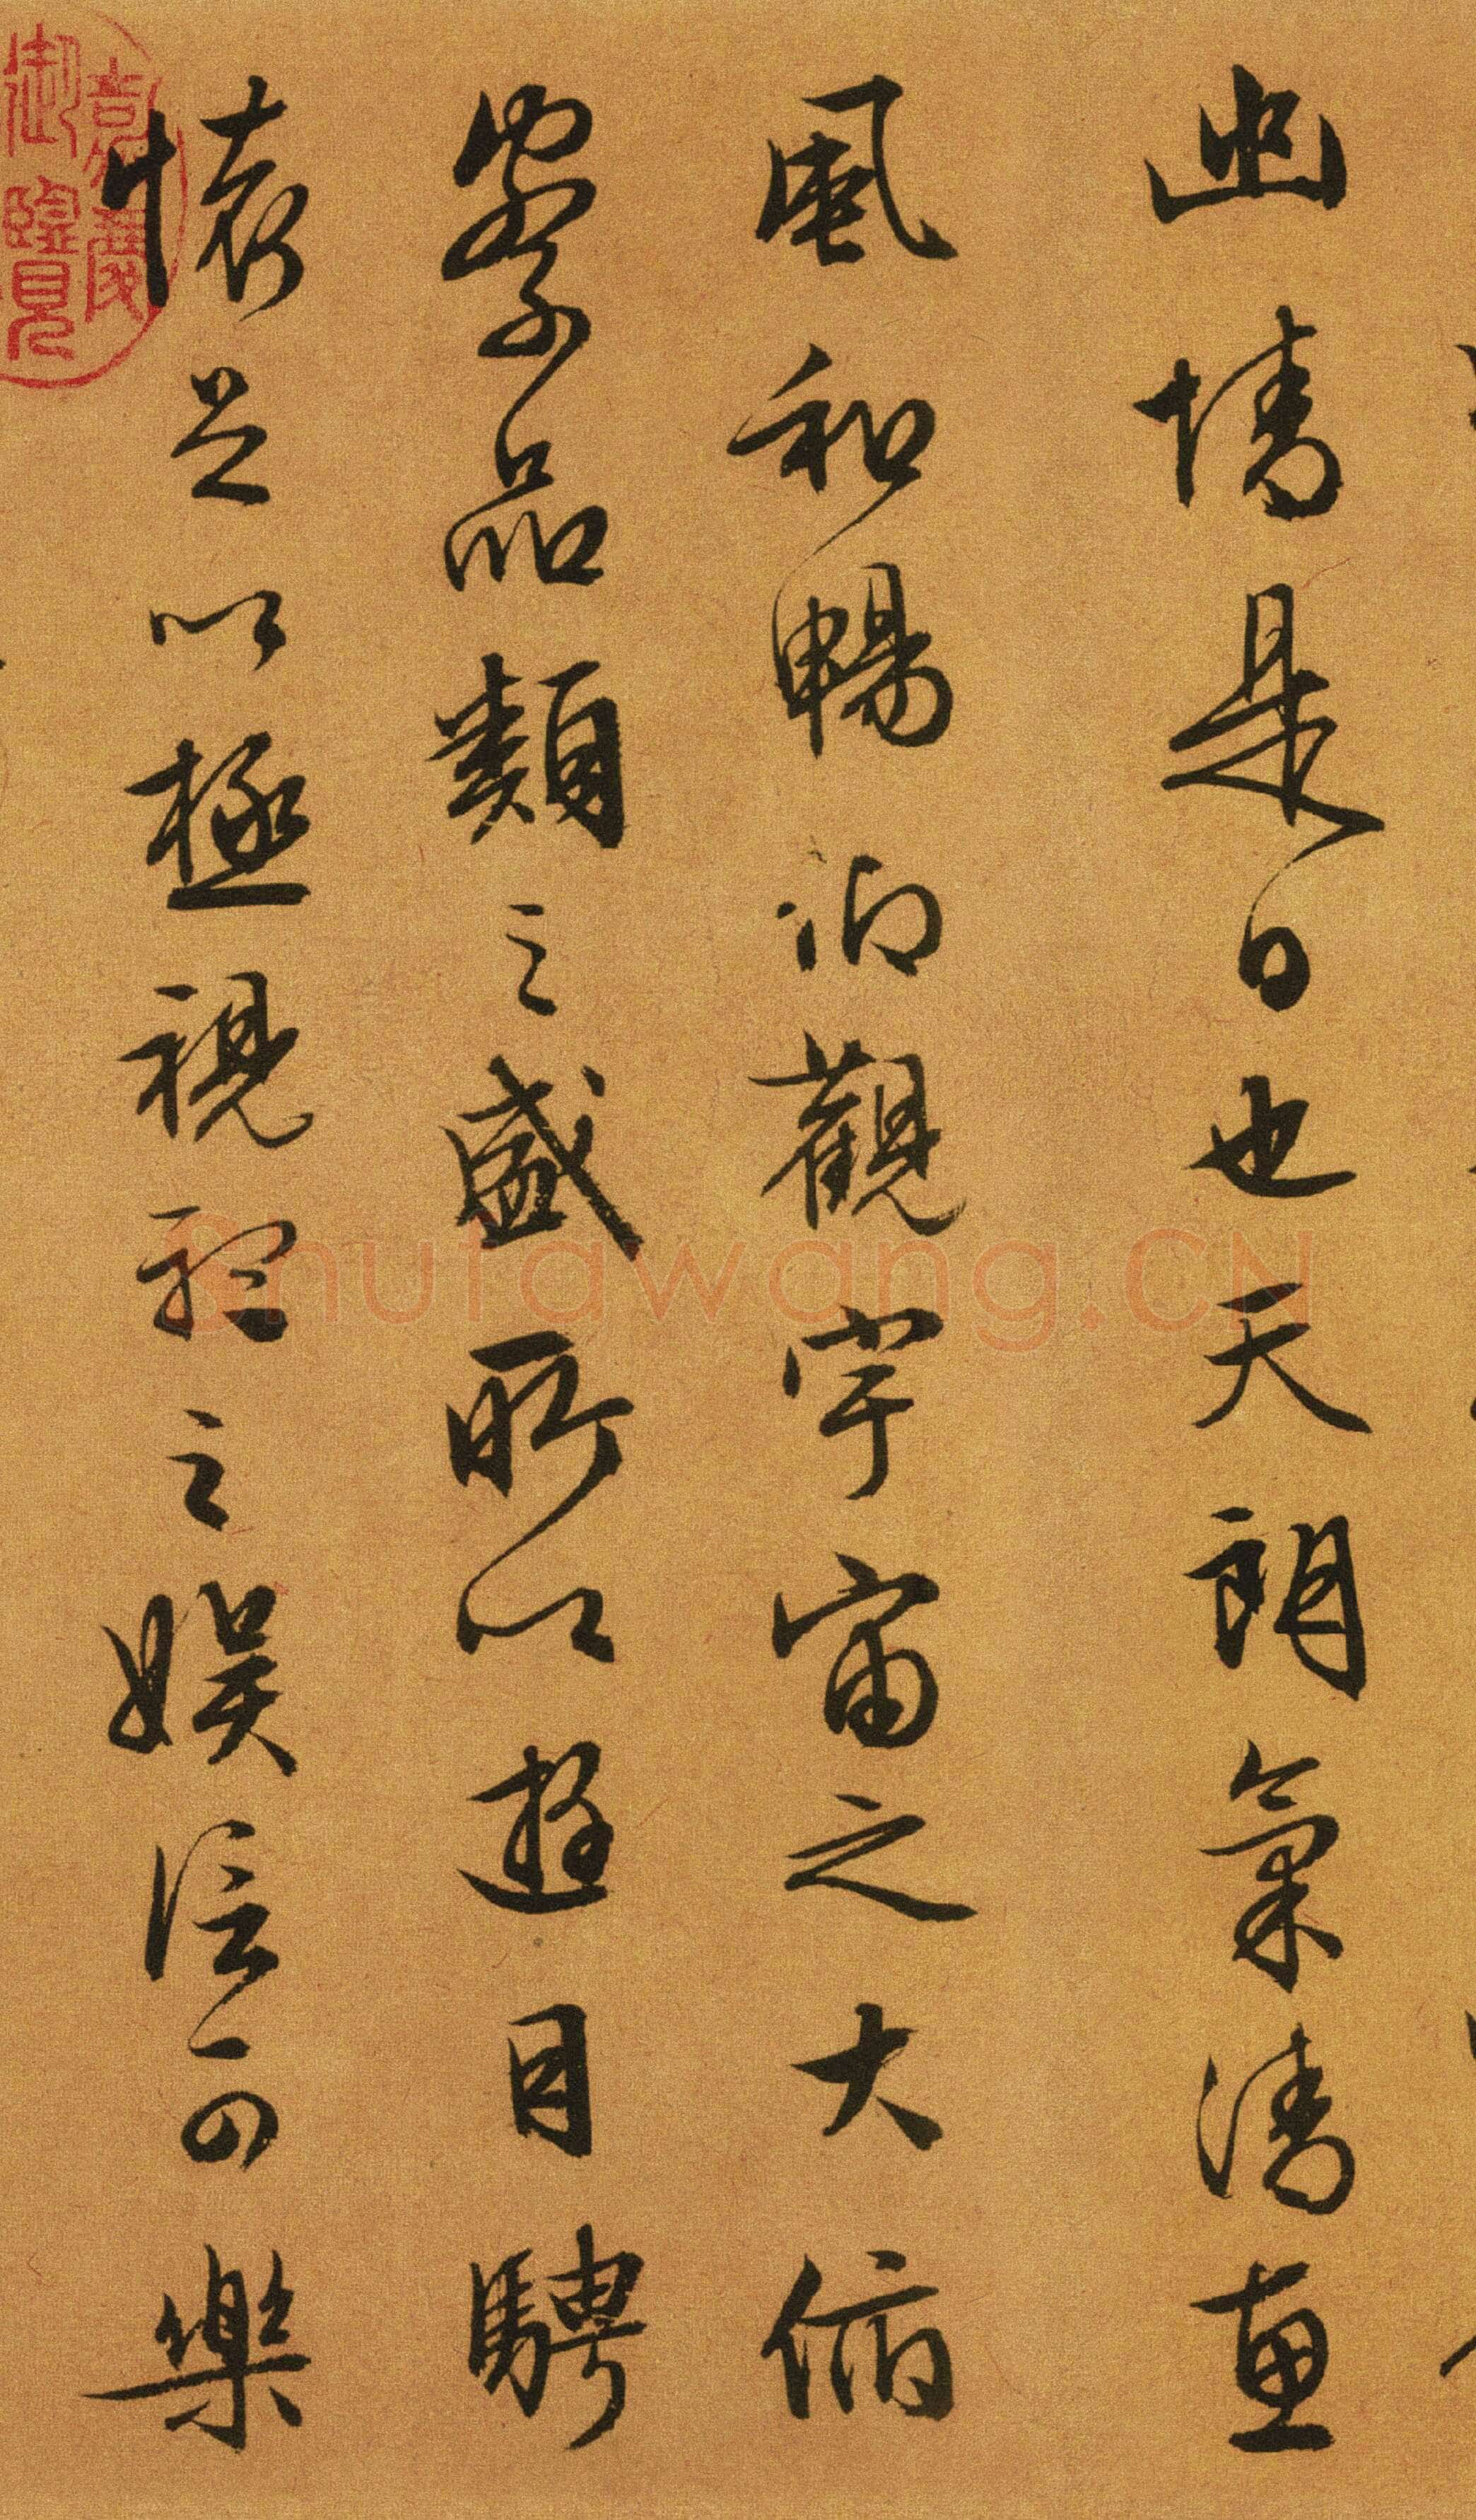 幽情是日也天朗氣清惠
風和暢仰觀宇宙之大俯
察品類之盛所以遊目騁
懷足以極視聽之娛信可樂
嘉慶
御覽
Shufawang.CN